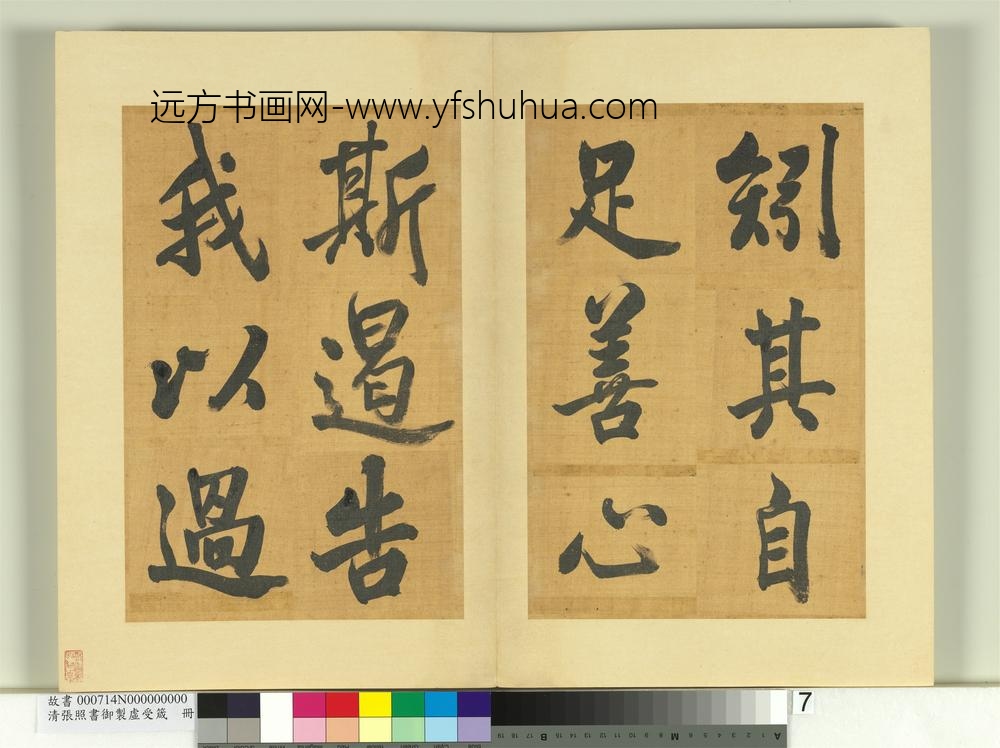 远方书画网-www.yfshuhua.com
矧其自
足善心
斯遏告
我以過
故書 000714N000000000
清張照書御製虛受箴 冊
7